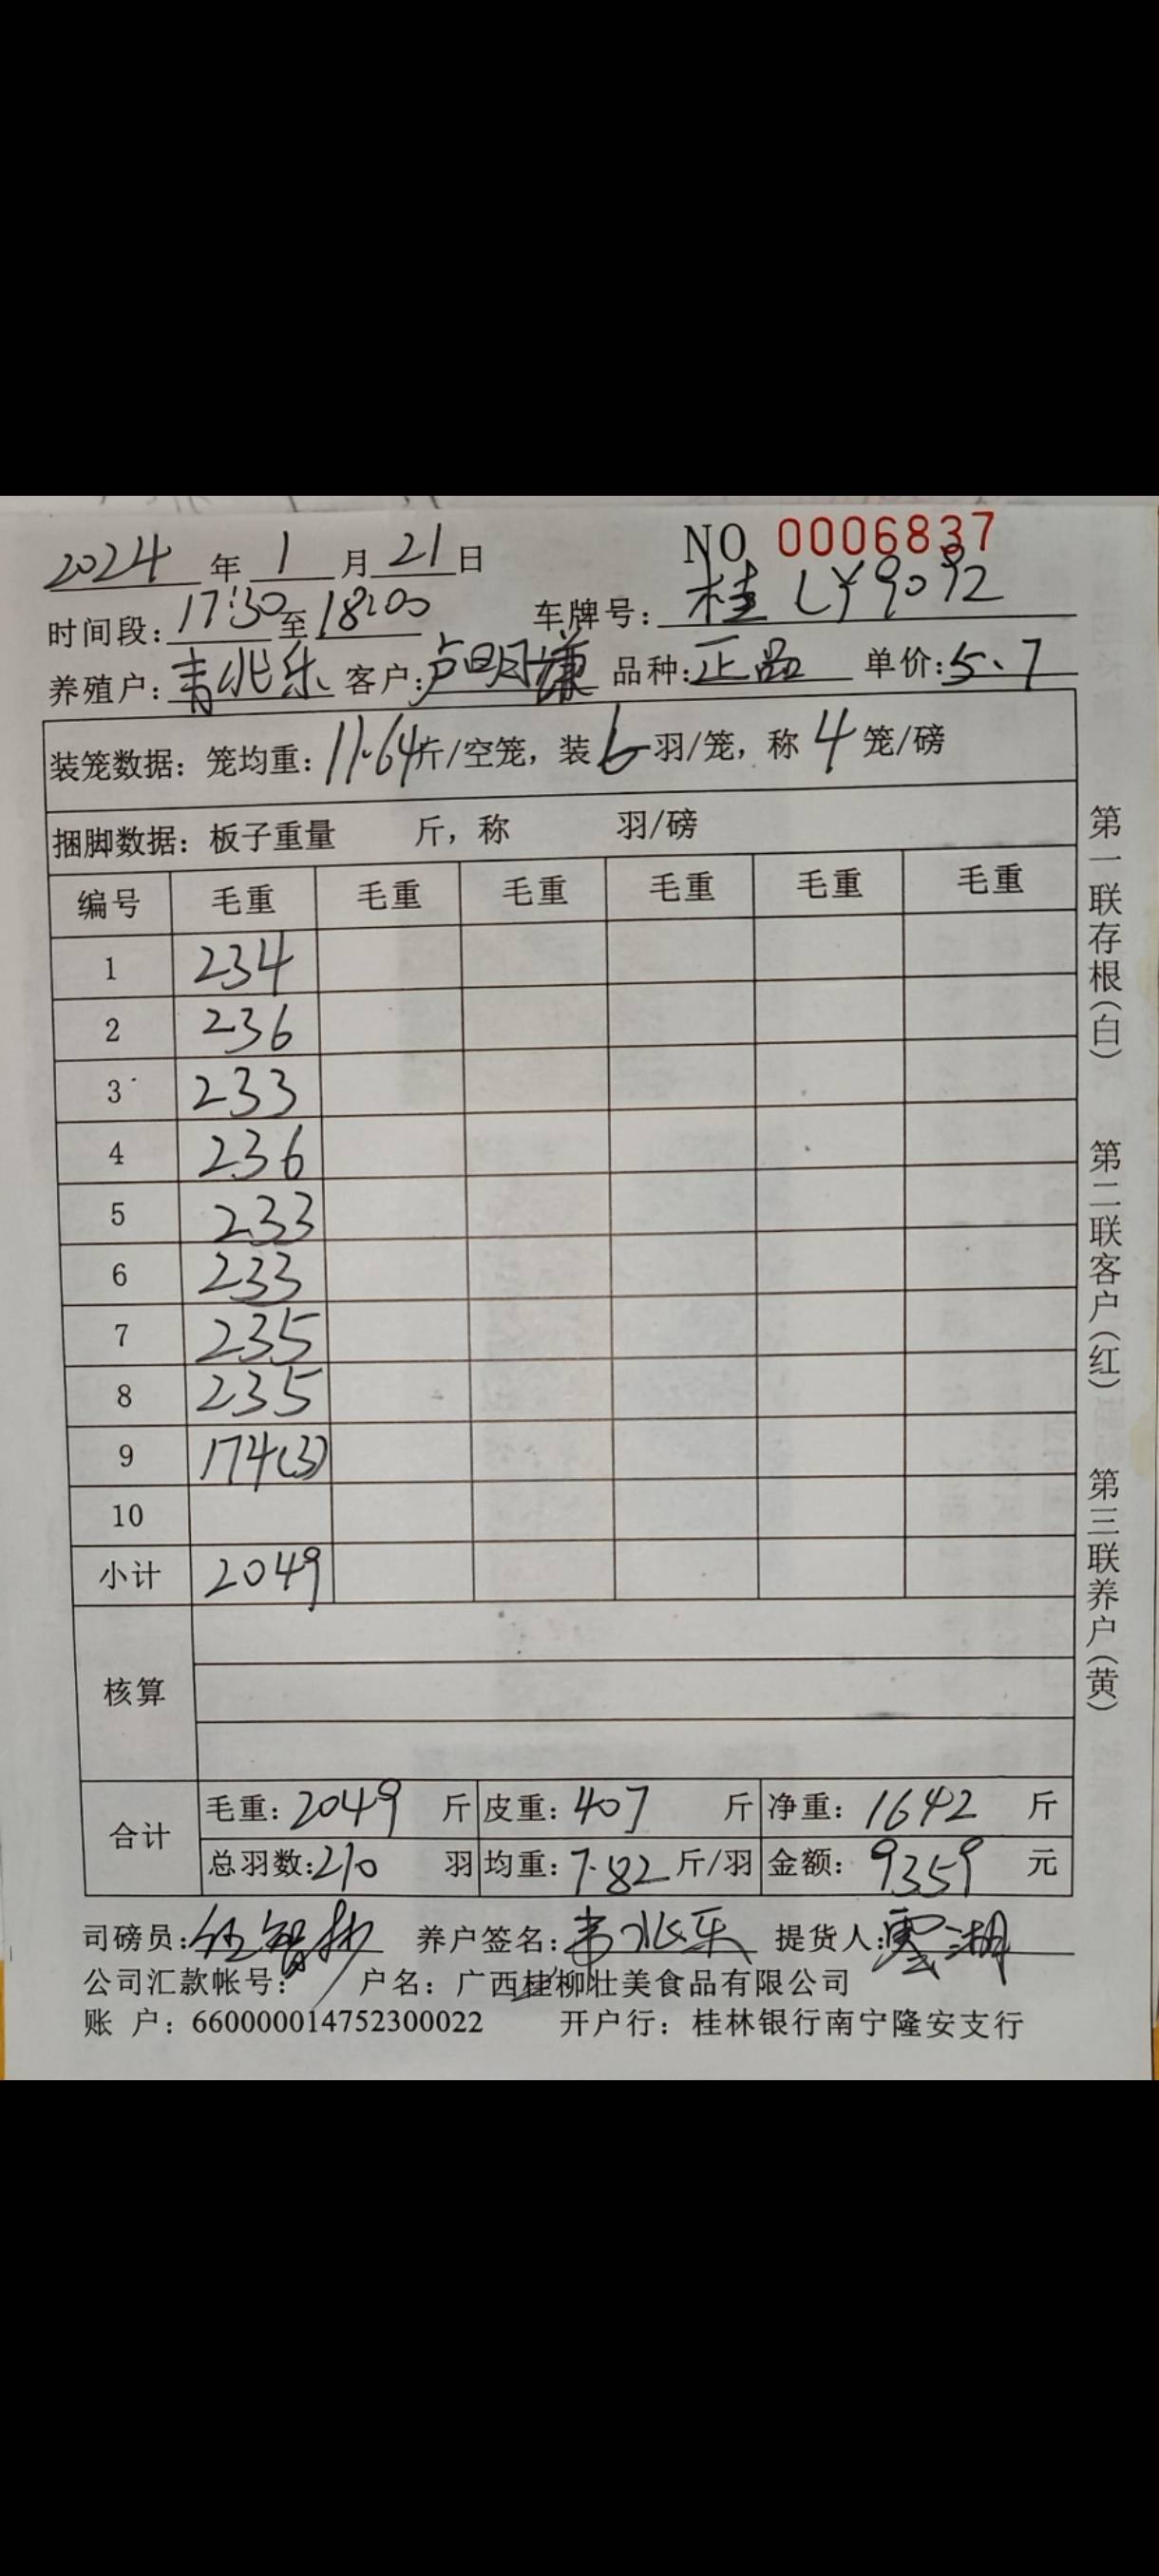 NO 0006837
2024年1月21日
时间段:17:30至18:00 车牌号:桂LY9092
养殖户:韦兆乐 客户:卢明谦 品种:正品 单价:5.7
装笼数据:笼均重:11.64斤/空笼,装6羽/笼,称4笼/磅
捆脚数据:板子重量 斤,称 羽/磅
编号 毛重 毛重 毛重 毛重 毛重 毛重
1 234
2 236
3 233
4 236
5 233
6 233
7 235
8 235
9 174(3)
10
小计 2049
核算
合计 毛重:2049斤 皮重:407斤 净重:1642斤
总羽数:210羽 均重:7.82斤/羽 金额:9359元
司磅员: 养户签名:韦兆乐 提货人:
公司汇款帐号: 户名:广西桂柳壮美食品有限公司
账 户:660000014752300022 开户行:桂林银行南宁隆安支行
第一联存根(白) 第二联客户(红) 第三联养户(黄)